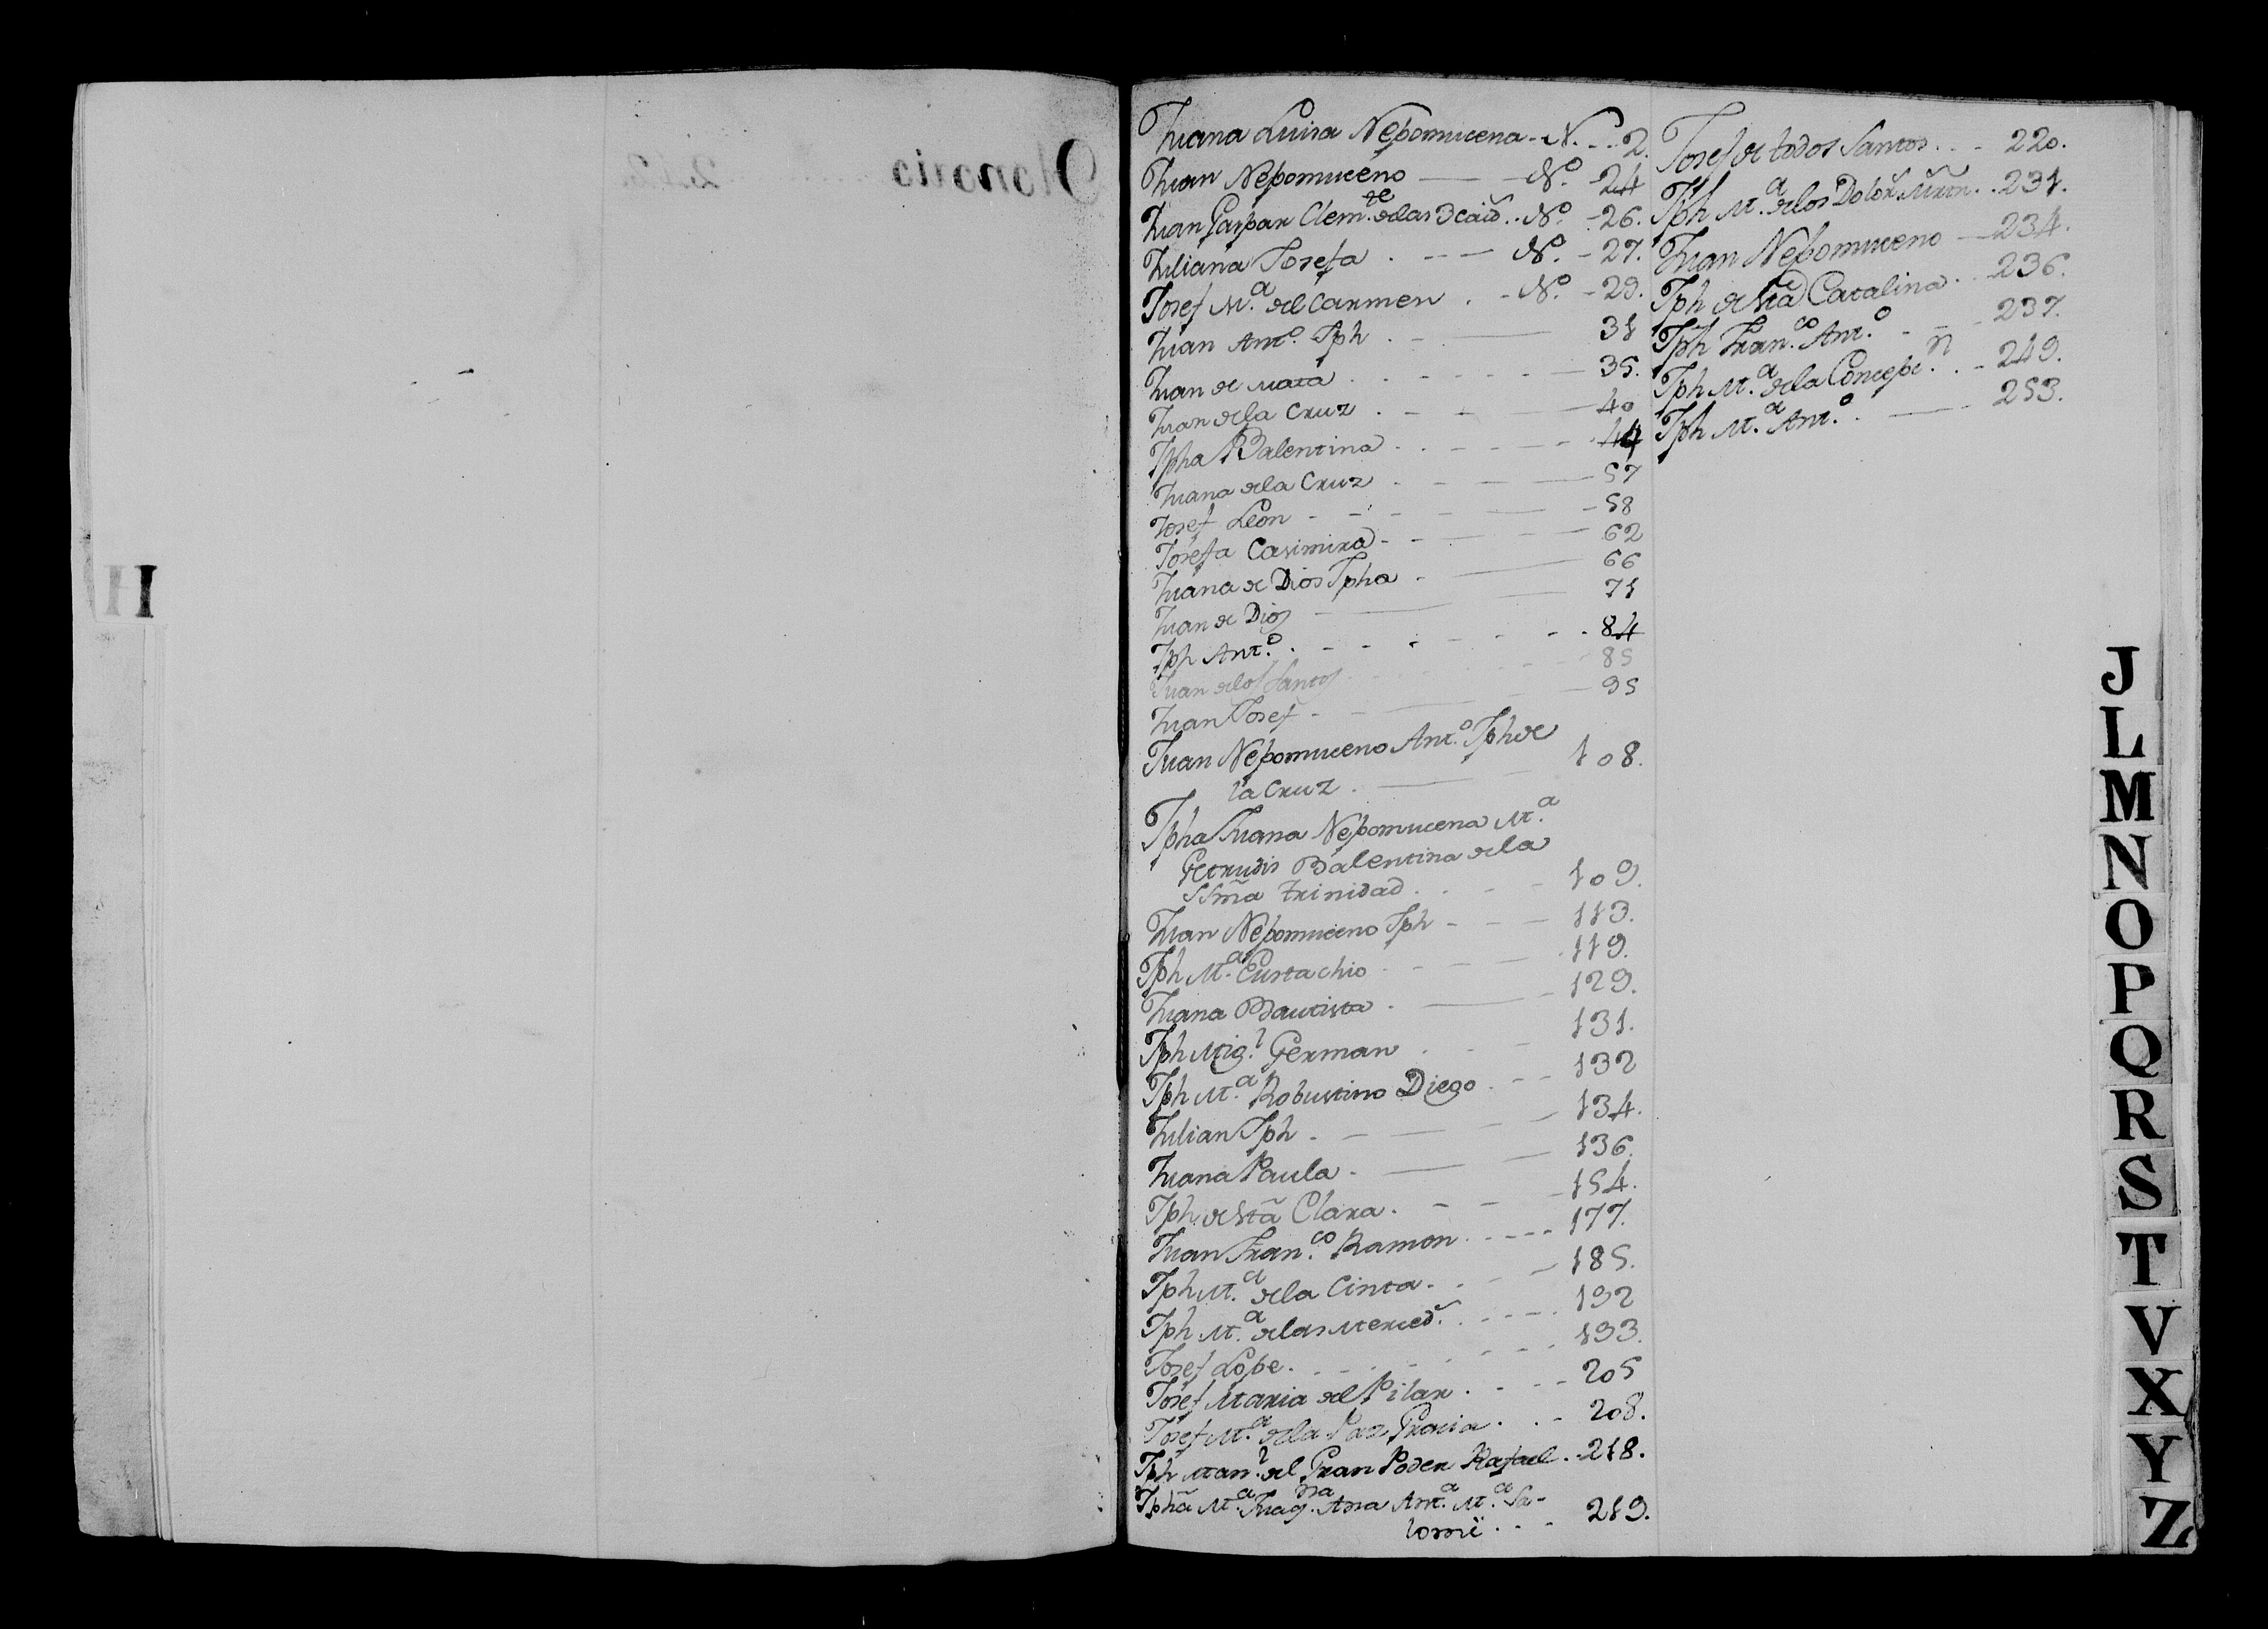 H
Juana Luisa Nepomucena - N. - - 2.
Juan Nepomuceno — — N.º - 24
Juan Gaspar Clem.te de las 3 caid.s . . N.º - 26.
Juliana Josefa . - — N.º - 27.
Josef M.a del Carmen . - N.º - 29.
Juan Ant.o Jph . - — 31
Juan de Mata . - - - - - 35.
Juan de la Cruz . - - — 40
Jpha Balentina . . - - - - 44
Juana de la Cruz . - - — 57
Josef Leon - - - - — - 58
Josefa Casimira - - - — 62
Juana de Dios Jpha - — 66
Juan de Dios — — 71
Jph Ant.o . - - - - - . 84
Juan de los Santos . . . - - - 85
Juan Josef - - — 95
Juan Nepomuceno Ant.o Jph de
la Cruz . — 108.
Jpha Juana Nepomucena M.a
Getrudis Balentina de la
SSma trinidad . . - - 109.
Juan Nepomuceno Jph - - - 113.
Jph M.a Eustachio - - - - . 119.
Juana Bautista . — - 129.
Jph Mig.l German . - - 131.
Jph M.a Robustino Diego . - - 132
Julian Jph . - — - - 134.
Juana Paula . — - 136.
Jph de Sta Clara . - - - 154.
Juan Fran.co Ramon . - - - 177.
Jph M.a de la Cinta . . - - 185.
Jph M.a de las Merced.s . - - - . 192
Josef Lope . . - - - - - - 193.
Josef Maria del Pilar . . - - - 205
Josef M.a de la Paz, Gracia . . . - 208.
Jph Man.l del Gran Poder Rafael . - 218.
Jpha M.a Ana Ant.a M.a Sa-
lome . . - 219.
Josef de todos Santos . . - 220.
Jph M.a de los Dolor.s . . 231.
Juan Nepomuceno — 234.
Jph de Sta Catalina . . 236.
Jph Fran.co Ant.o - - - 237.
Jph M.a de la Concepc.n . . - 249.
Jph M.a Ant.o . — - 253.
J
L
M
N
O
P
Q
R
S
T
V
X
Y
Z